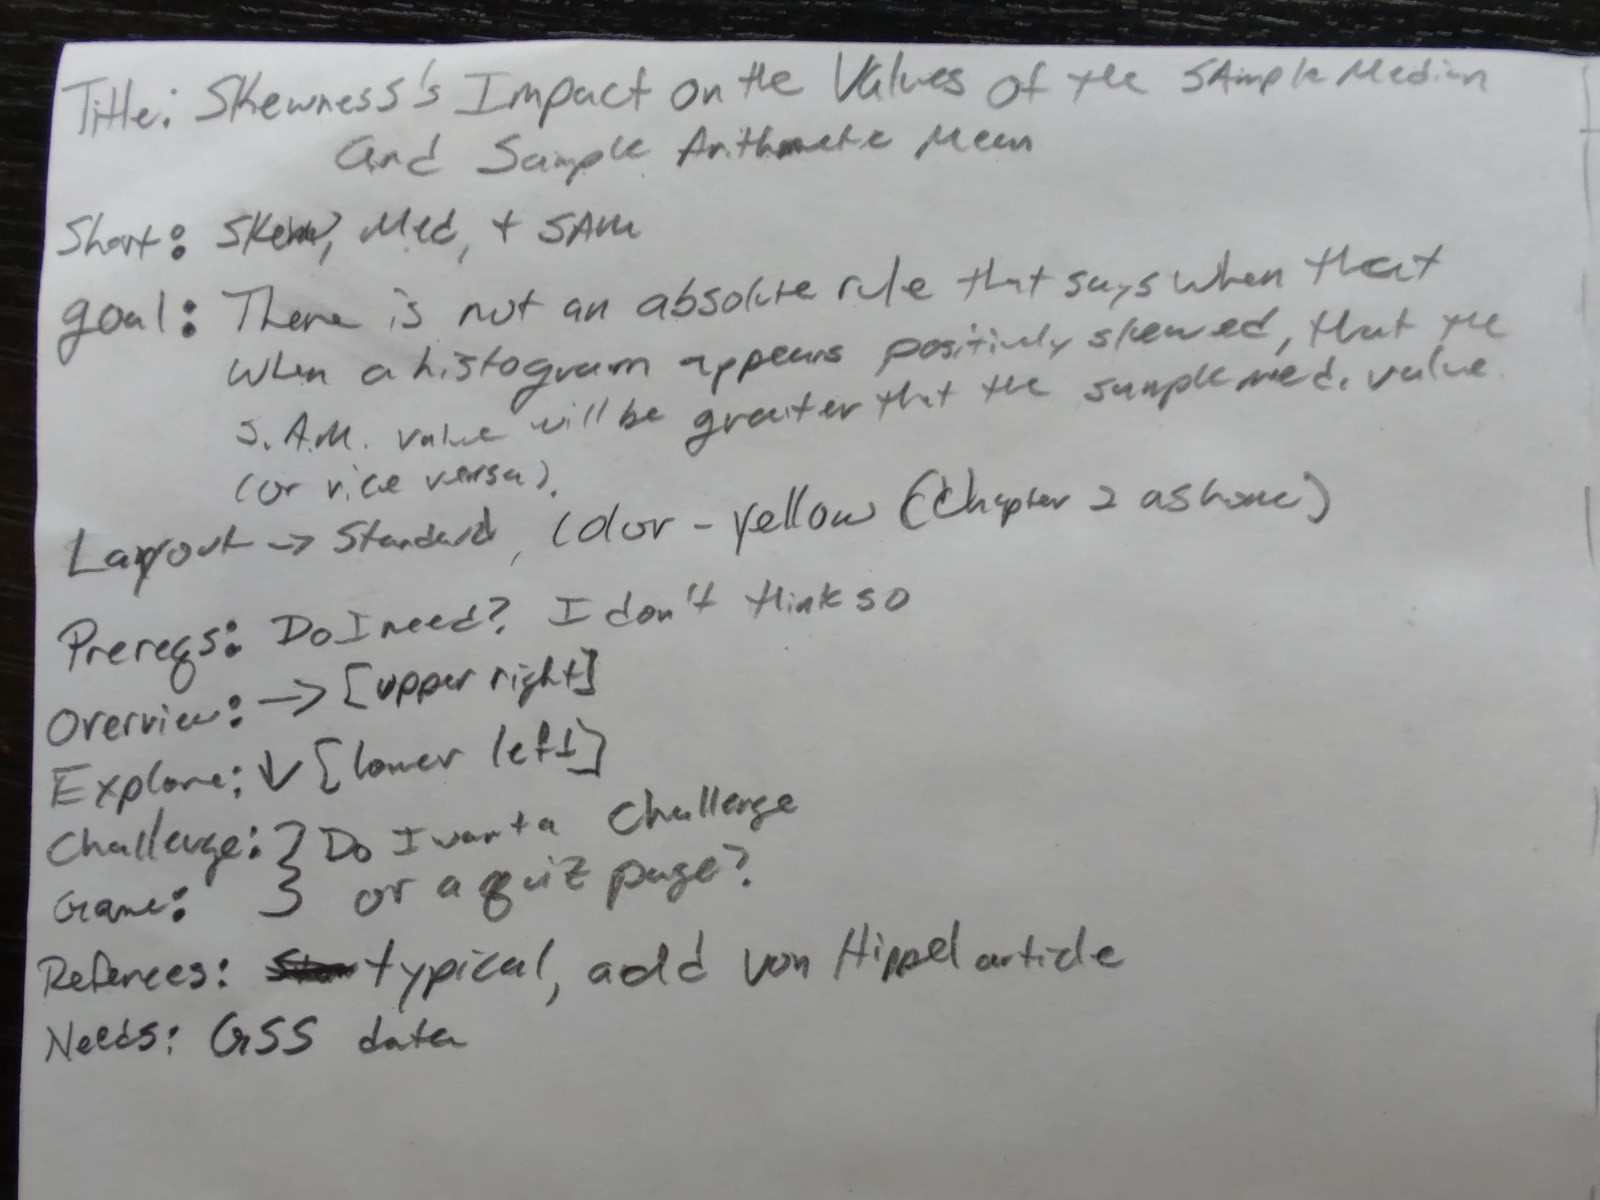 Title: Skewness's Impact on the Values of the Sample Median
and Sample Arithmetic Mean
Short: Skew, Med, + SAM
goal: There is not an absolute rule that says when that
when a histogram appears positively skewed, that the
S.A.M. value will be greater that the sample med. value.
(or vice versa).
Layout -> Standard, Color - yellow (Chapter 2 as home)
Prereqs: Do I need? I don't think so
Overview: -> [upper right]
Explore: ↓ [lower left]
Challenge: } Do I want a challenge
Game: } or a quiz page?
Referees: typical, add von Hippel article
Needs: GSS data